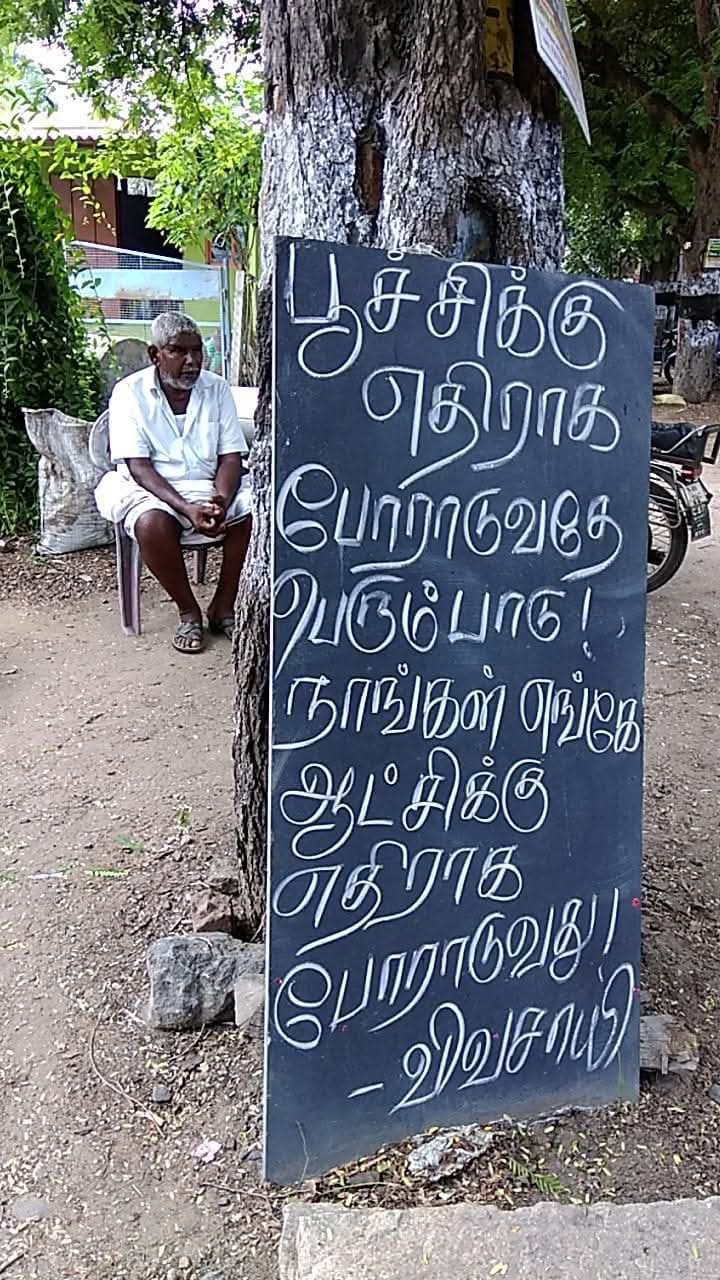 பூச்சிக்கு
எதிராக
போராடுவதே
பெரும்பாடு!
நாங்கள் எங்கே
ஆட்சிக்கு
எதிராக
போராடுவது!
- விவசாயி